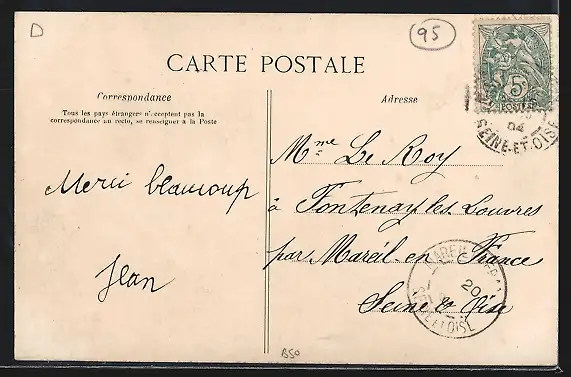 D
95
CARTE POSTALE
Correspondance
Tous les pays étrangers n'acceptent pas la
correspondance au recto, se renseigner à la Poste
Merci beaucoup
Jean
Adresse
5c
POSTES
04
SEINE-ET-OISE
Mme Le Roy
à Fontenay les Louvres
par Mareil en France
Seine & Oise
20
B50